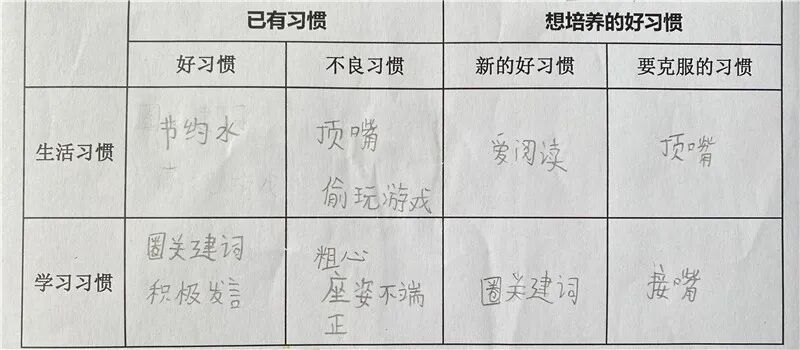 已有习惯 想培养的好习惯
好习惯 不良习惯 新的好习惯 要克服的习惯
生活习惯 节约水 顶嘴 爱阅读 顶嘴
偷玩游戏
学习习惯 圈关建词 粗心 圈关建词 接嘴
积极发言 座姿不端
正